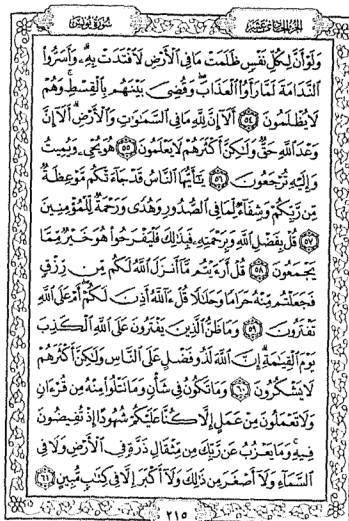 الجزء الحادي عشر سورة يونس
وَلَوْ أَنَّ لِكُلِّ نَفْسٍ ظَلَمَتْ مَا فِي ٱلْأَرْضِ لَٱفْتَدَتْ بِهِۦۗ وَأَسَرُّوا۟
ٱلنَّدَامَةَ لَمَّا رَأَوُا۟ ٱلْعَذَابَۖ وَقُضِىَ بَيْنَهُم بِٱلْقِسْطِۚ وَهُمْ
لَا يُظْلَمُونَ ٥٤ أَلَآ إِنَّ لِلَّهِ مَا فِي ٱلسَّمَٰوَٰتِ وَٱلْأَرْضِۗ أَلَآ إِنَّ
وَعْدَ ٱللَّهِ حَقٌّ وَلَٰكِنَّ أَكْثَرَهُمْ لَا يَعْلَمُونَ ٥٥ هُوَ يُحْىِۦ وَيُمِيتُ
وَإِلَيْهِ تُرْجَعُونَ ٥٦ يَٰٓأَيُّهَا ٱلنَّاسُ قَدْ جَآءَتْكُم مَّوْعِظَةٌ
مِّن رَّبِّكُمْ وَشِفَآءٌ لِّمَا فِي ٱلصُّدُورِ وَهُدًى وَرَحْمَةٌ لِّلْمُؤْمِنِينَ
٥٧ قُلْ بِفَضْلِ ٱللَّهِ وَبِرَحْمَتِهِۦ فَبِذَٰلِكَ فَلْيَفْرَحُوا۟ هُوَ خَيْرٌ مِّمَّا
يَجْمَعُونَ ٥٨ قُلْ أَرَءَيْتُم مَّآ أَنزَلَ ٱللَّهُ لَكُم مِّن رِّزْقٍ
فَجَعَلْتُم مِّنْهُ حَرَامًا وَحَلَٰلًا قُلْ ءَآللَّهُ أَذِنَ لَكُمْۖ أَمْ عَلَى ٱللَّهِ
تَفْتَرُونَ ٥٩ وَمَا ظَنُّ ٱلَّذِينَ يَفْتَرُونَ عَلَى ٱللَّهِ ٱلْكَذِبَ
يَوْمَ ٱلْقِيَٰمَةِۗ إِنَّ ٱللَّهَ لَذُو فَضْلٍ عَلَى ٱلنَّاسِ وَلَٰكِنَّ أَكْثَرَهُمْ
لَا يَشْكُرُونَ ٦٠ وَمَا تَكُونُ فِي شَأْنٍ وَمَا تَتْلُوا۟ مِنْهُ مِن قُرْءَانٍ
وَلَا تَعْمَلُونَ مِنْ عَمَلٍ إِلَّا كُنَّا عَلَيْكُمْ شُهُودًا إِذْ تُفِيضُونَ
فِيهِۚ وَمَا يَعْزُبُ عَن رَّبِّكَ مِن مِّثْقَالِ ذَرَّةٍ فِي ٱلْأَرْضِ وَلَا فِي
ٱلسَّمَآءِ وَلَآ أَصْغَرَ مِن ذَٰلِكَ وَلَآ أَكْبَرَ إِلَّا فِي كِتَٰبٍ مُّبِينٍ ٦١
٢١٥